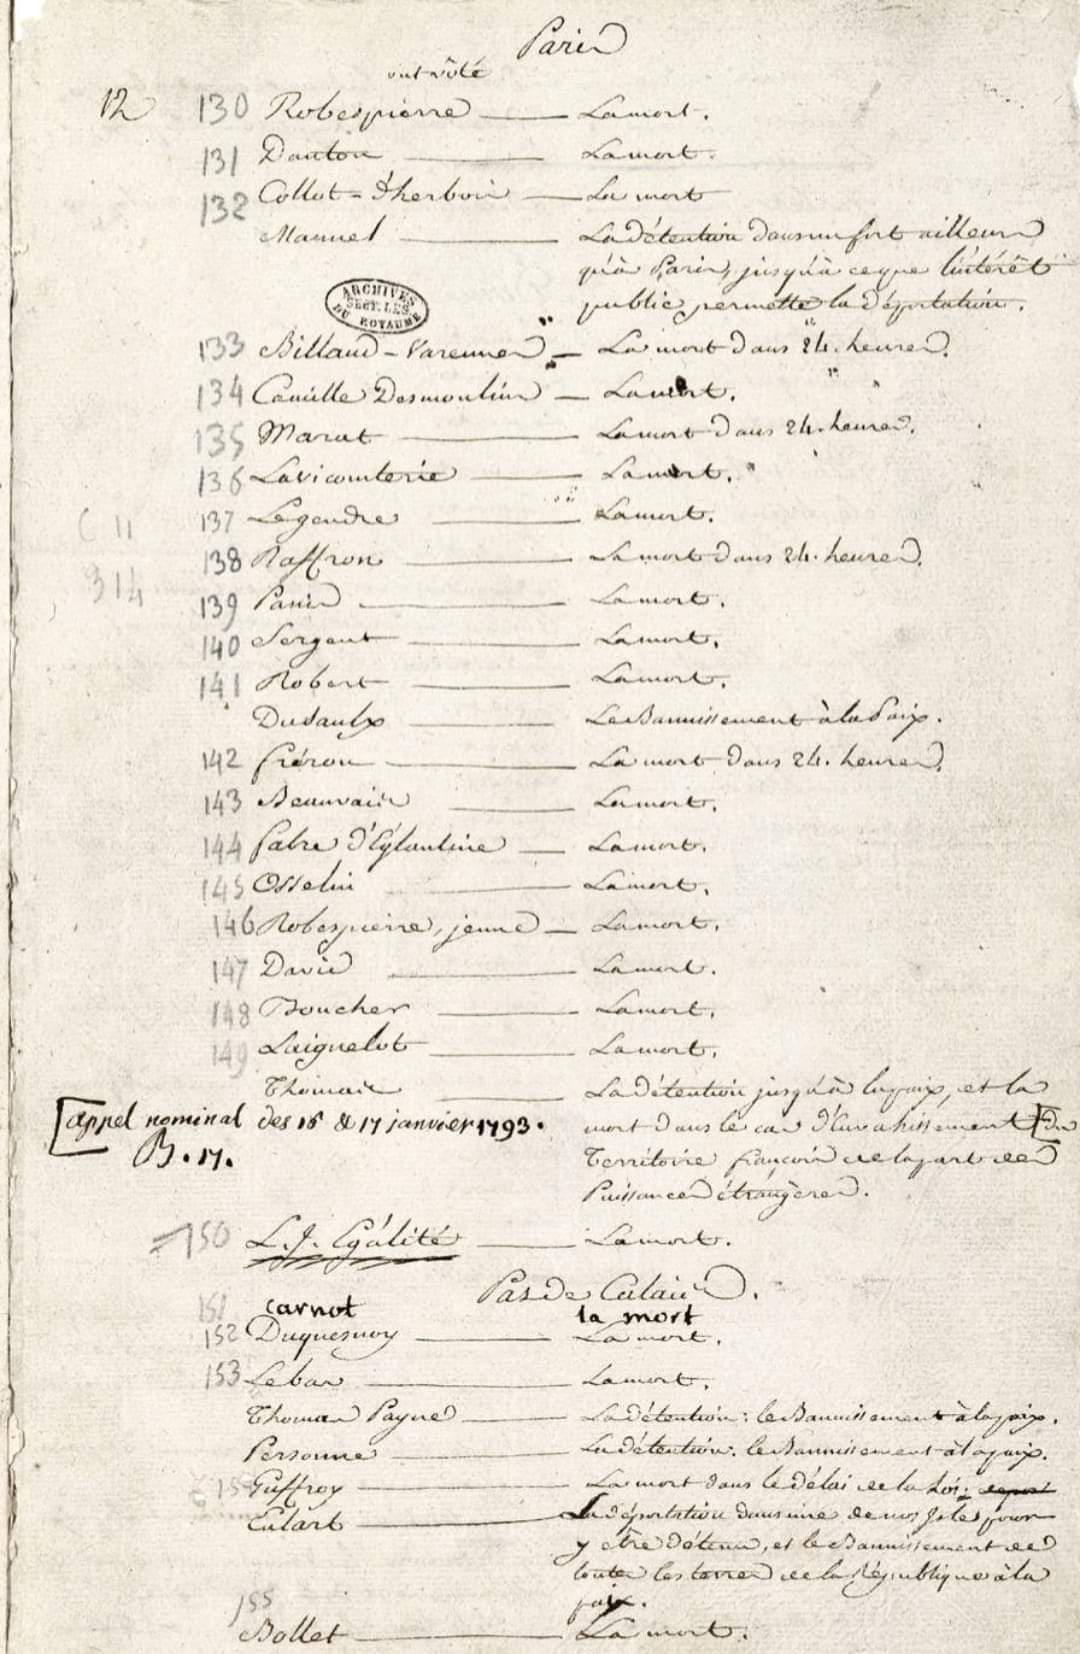 Paris
ont voté
12
130 Robespierre — La mort.
131 Danton — La mort.
132 Collot-d'herbois — La mort
Manuel — La détention dans un fort ailleurs
qu'à Paris, jusqu'à ce que l'intérêt
public permette la déportation.
ARCHIVES
SECT. LES.
DU ROYAUME
133 Billaud-Varennes — La mort dans 24. heures.
134 Camille Desmoulins — La mort.
135 Marat — La mort dans 24. heures.
136 Lavicomterie — La mort.
C II
137 Legendre — La mort.
138 Raffron — La mort dans 24. heures.
314
139 Panis — La mort.
140 Sergent — La mort.
141 Robert — La mort.
Dusaulx — Le Bannissement à la Paix.
142 fréron — La mort dans 24. heures.
143 Beauvais — La mort.
144 fabre d'Eglantine — La mort.
145 Osselin — La mort.
146 Robespierre, jeune — La mort.
147 David — La mort.
148 Boucher — La mort.
149 Laignelot — La mort.
Thomas — La détention jusqu'à la paix, et la
[appel nominal des 16 & 17 janvier 1793.
mort dans le cas d'Envahissement [du
B. 17.
Territoire françois de la part des
Puissances étrangères.
150 L. J. Egalité — La mort.
Pas de Calais.
151 carnot la mort
152 Duquesnoy — La mort.
153 Lebas — La mort.
Thomas Payne — La détention: le Bannissement à la paix.
Personne — La détention: le Bannissement à la paix.
Guffroy — La mort dans le délai de la Loi.
Enlart — La déportation dans une de nos Isles pour
y être détenu, et le Bannissement de
toutes les terres de la République à la
paix.
155
Bollet — La mort.